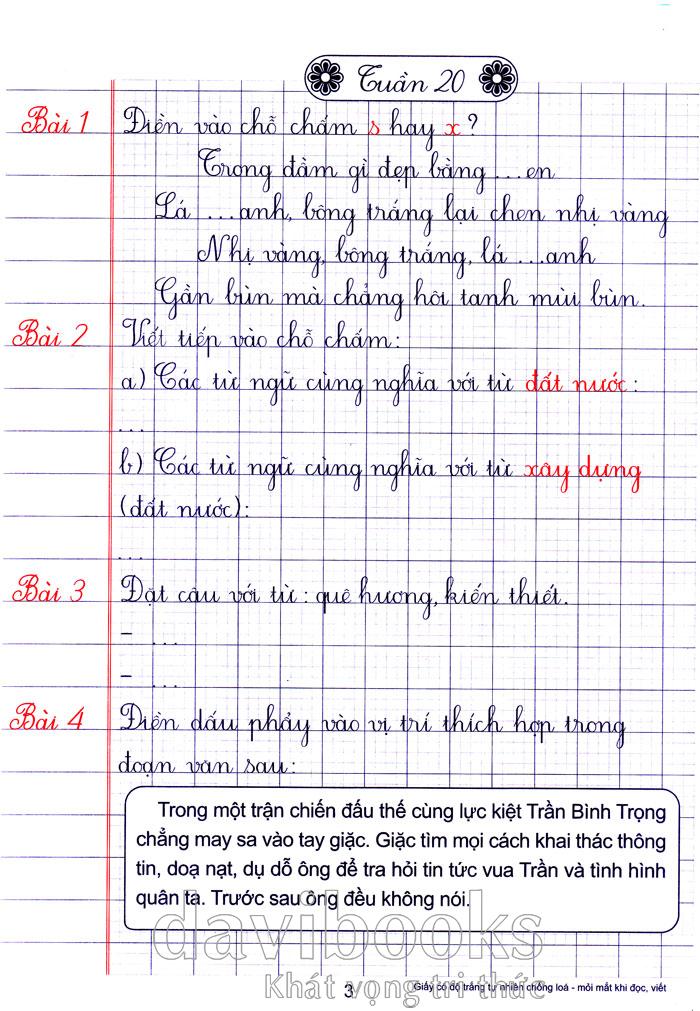 Tuần 20
Bài 1 Điền vào chỗ chấm s hay x ?
Trong đầm gì đẹp bằng ...en
Lá ...anh, bông trắng lại chen nhị vàng
Nhị vàng, bông trắng, lá ...anh
Gần bùn mà chẳng hôi tanh mùi bùn.
Bài 2 Viết tiếp vào chỗ chấm:
a) Các từ ngữ cùng nghĩa với từ đất nước:
...
b) Các từ ngữ cùng nghĩa với từ xây dựng
(đất nước):
...
Bài 3 Đặt câu với từ : quê hương, kiến thiết.
– ...
– ...
Bài 4 Điền dấu phẩy vào vị trí thích hợp trong
đoạn văn sau:
Trong một trận chiến đấu thế cùng lực kiệt Trần Bình Trọng
chẳng may sa vào tay giặc. Giặc tìm mọi cách khai thác thông
tin, doạ nạt, dụ dỗ ông để tra hỏi tin tức vua Trần và tình hình
quân ta. Trước sau ông đều không nói.
davibooks
Khát vọng tri thức
3 Giấy có độ trắng tự nhiên chống loá - mỏi mắt khi đọc, viết